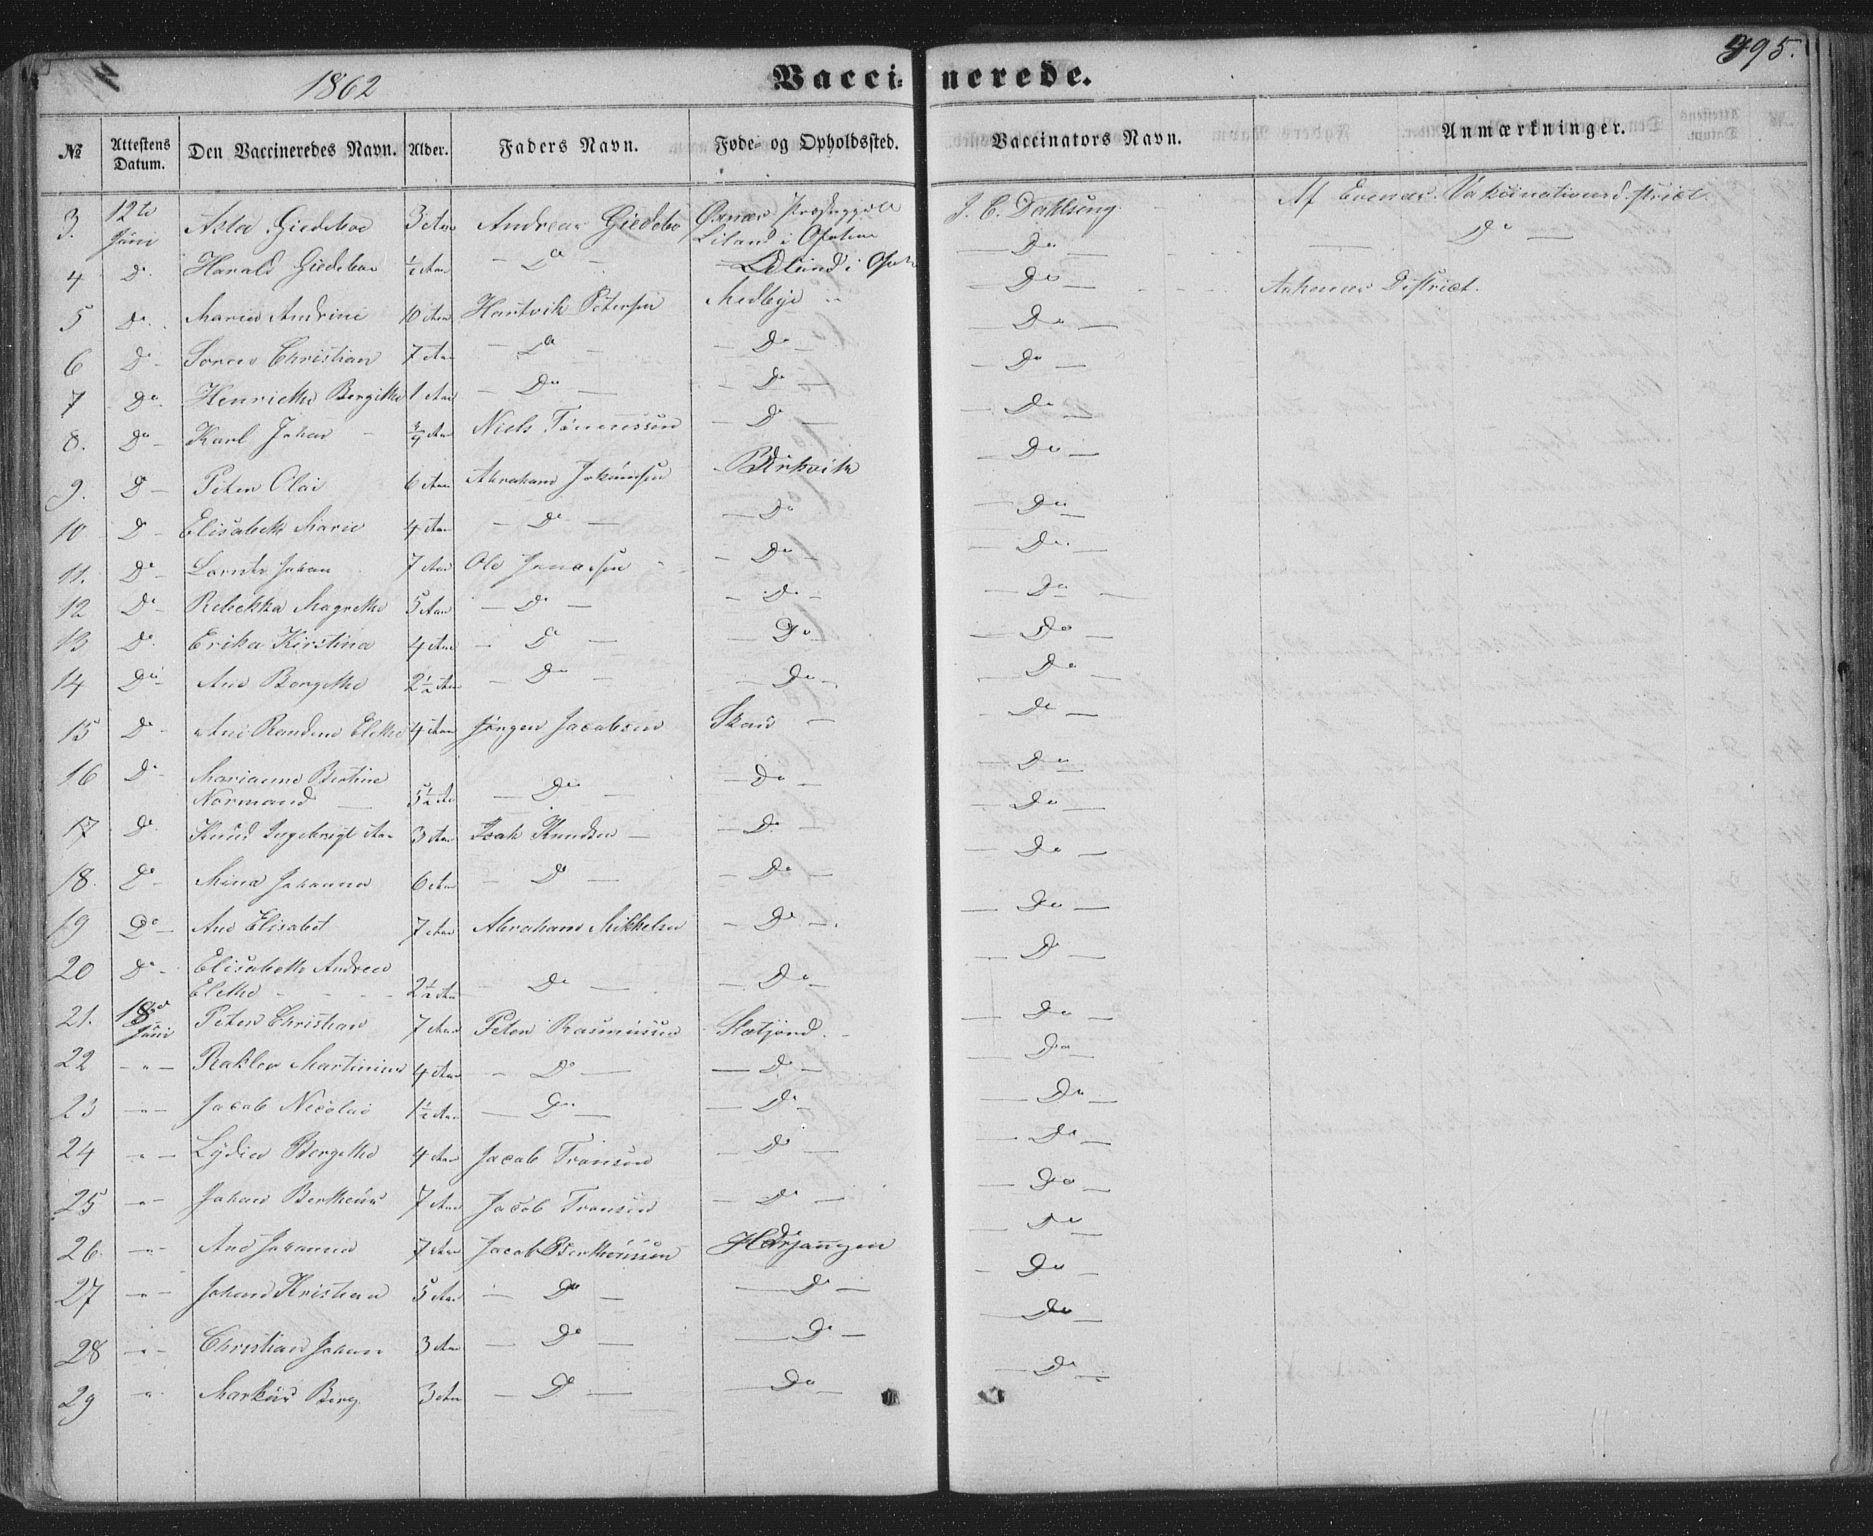 1862 Vaccinerede. 395.
№ Attestens Datum. Den Vaccineredes Navn. Alder. Faders Navn. Føde- og Opholdssted. Vaccinators Navn. Anmærkninger.
3. 12te Juni Asta Giedeboe 3 Aar Andreas Giedebo Liland i Ofoten J. C. Dahlseng Af Evenæs Vakcinationsdistrict
4 Do Harald Giedeboe ½ Aar — Do — Liland i Ofot — Do — — Do —
5 Do Maria Andrine 10 Aar Hartvik Petersen Medbye — Do — Ankenes District.
6 Do Søren Christian 7 Aar — Do — — Do — — Do —
7 Do Henrikke Bergitte 1 Aar — Do — — Do — — Do —
8. Do Karl Johan ¾ Aar Niels Tønnessen — Do — — Do —
9. Do Peter Olai 6 Aar Abraham Johansen Birkvik — Do —
10 Do Elisabeth Marie 4 Aar — Do — — Do — — Do —
11. Do Lorents Johan 7 Aar Ole Jonassen — Do — — Do —
12 Do Rebekka Magrethe 5 Aar — Do — — Do — — Do —
13 Do Erika Kirstina 4 Aar — Do — — Do — — Do —
14 Do Ane Bergitte 2½ Aar — Do — — Do — — Do —
15 Do Ane Randine Elethe 4 Aar Jørgen Jacobsen — Do —
16 Do Marianne Bertine
Normand 5½ Aar — Do — — Do — — Do —
17 Do Knud Ingebrigt 3 Aar Isak Knudsen — Do — — Do —
18. Do Mina Johanna 6 Aar — Do — — Do — — Do —
19 Do Ane Elisabet 7 Aar Abraham Mikkelsen — Do — — Do —
20 Do Elisabeth Andrea
Elethe 2½ Aar — Do — — Do — — Do —
21. 18de Juni Peter Christian 7 Aar Peter Rasmussen — Do —
22 — " — Martinus 4 Aar — Do — — Do — — Do —
23 — " — Jacob Nicolai 1½ Aar — Do — — Do — — Do —
24 — " — Lydia Bergitte 4 Aar Jacob Fransen — Do — — Do —
25 — " — Johan Bertheus 7 Aar Jacob Fransen — Do — — Do —
26. — " — Ane Johanna 7 Aar Jacob Bertheussen Herjangen — Do —
27 — " — Johan Kristian 5 Aar — Do — — Do — — Do —
28 — " — Christian Johan 3 Aar — Do — — Do — — Do —
29 " Markus Berg 3 Aar — Do — — Do — — Do —